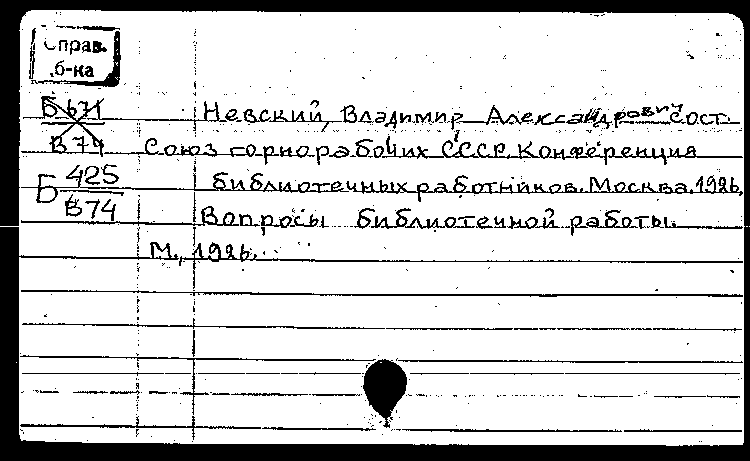 Справ.
б-ка
Б 671
В 74
Б 425
В 74
Невский, Владимир Александрович сост.
Союз горнорабочих СССР. Конференция
библиотечных работников. Москва. 1926.
Вопросы библиотечной работы.
М., 1926.